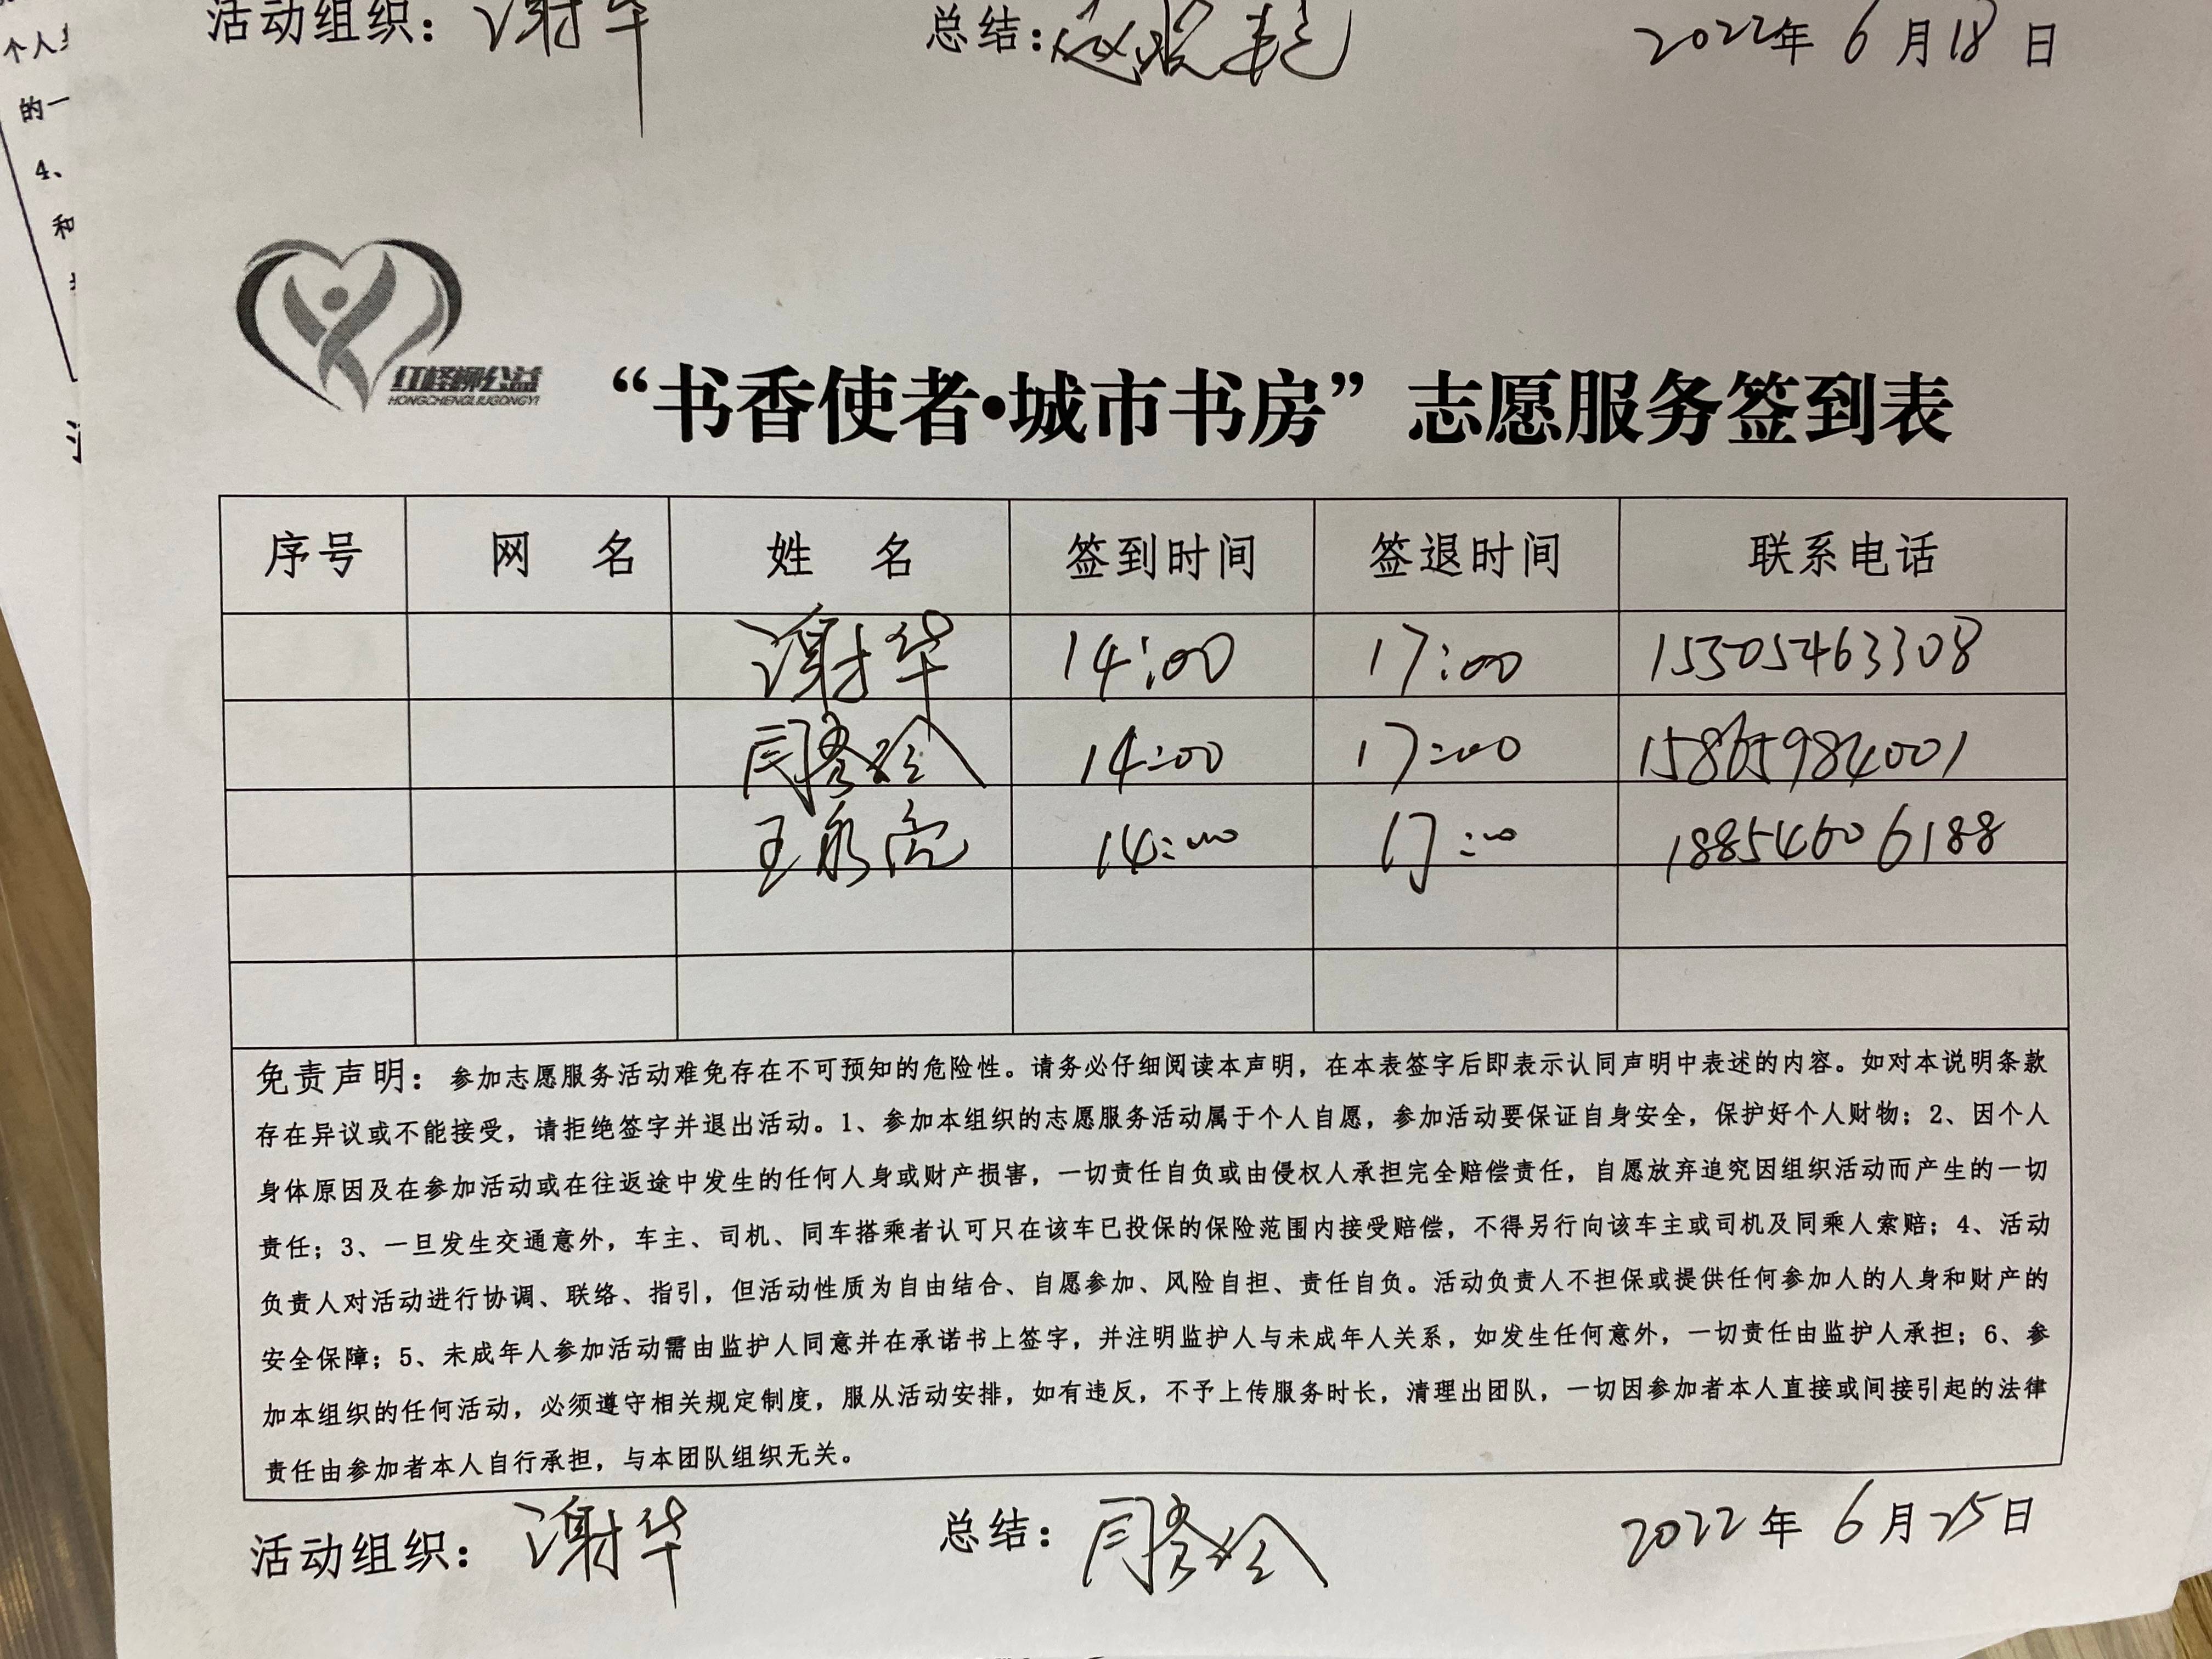 个人
的一
4、
和
活动组织：谢华 总结： 2022年6月18日
红柽柳公益
HONGCHENGLIUGONGYI
“书香使者•城市书房”志愿服务签到表
序号 网 名 姓 名 签到时间 签退时间 联系电话
谢华 14:00 17:00 15305463308
14:00 17:00 15865984001
王永亮 14:00 17:00 18854606188
免责声明：参加志愿服务活动难免存在不可预知的危险性。请务必仔细阅读本声明，在本表签字后即表示认同声明中表述的内容。如对本说明条款
存在异议或不能接受，请拒绝签字并退出活动。1、参加本组织的志愿服务活动属于个人自愿，参加活动要保证自身安全，保护好个人财物；2、因个人
身体原因及在参加活动或在往返途中发生的任何人身或财产损害，一切责任自负或由侵权人承担完全赔偿责任，自愿放弃追究因组织活动而产生的一切
责任；3、一旦发生交通意外，车主、司机、同车搭乘者认可只在该车已投保的保险范围内接受赔偿，不得另行向该车主或司机及同乘人索赔；4、活动
负责人对活动进行协调、联络、指引，但活动性质为自由结合、自愿参加、风险自担、责任自负。活动负责人不担保或提供任何参加人的人身和财产的
安全保障；5、未成年人参加活动需由监护人同意并在承诺书上签字，并注明监护人与未成年人关系，如发生任何意外，一切责任由监护人承担；6、参
加本组织的任何活动，必须遵守相关规定制度，服从活动安排，如有违反，不予上传服务时长，清理出团队，一切因参加者本人直接或间接引起的法律
责任由参加者本人自行承担，与本团队组织无关。
活动组织：谢华 总结： 2022年6月25日